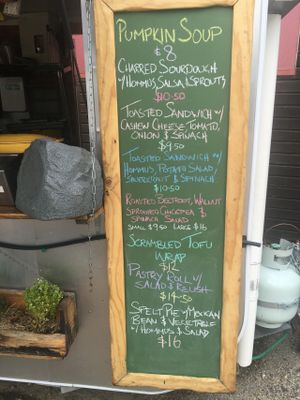 PUMPKIN SOUP
$8
CHARRED SOURDOUGH
W/ HOMMUS, SALSA & SPROUTS
$10.50
TOASTED SANDWICH W/
CASHEW CHEESE, TOMATO,
ONION & SPINACH
$9.50
TOASTED SANDWICH W/
HOMMUS, POTATO SALAD,
SAUERKRAUT & SPINACH
$10.50
ROASTED BEETROOT, WALNUT
SPROUTED CHICKPEA &
SPINACH SALAD
SMALL $9.50 LARGE $16
SCRAMBLED TOFU
WRAP
$12
PASTRY ROLL W/
SALAD & RELISH
$14.50
SPELT PIE W/ MEXICAN
BEAN & VEGETABLE
W/ HOMMUS & SALAD
$16